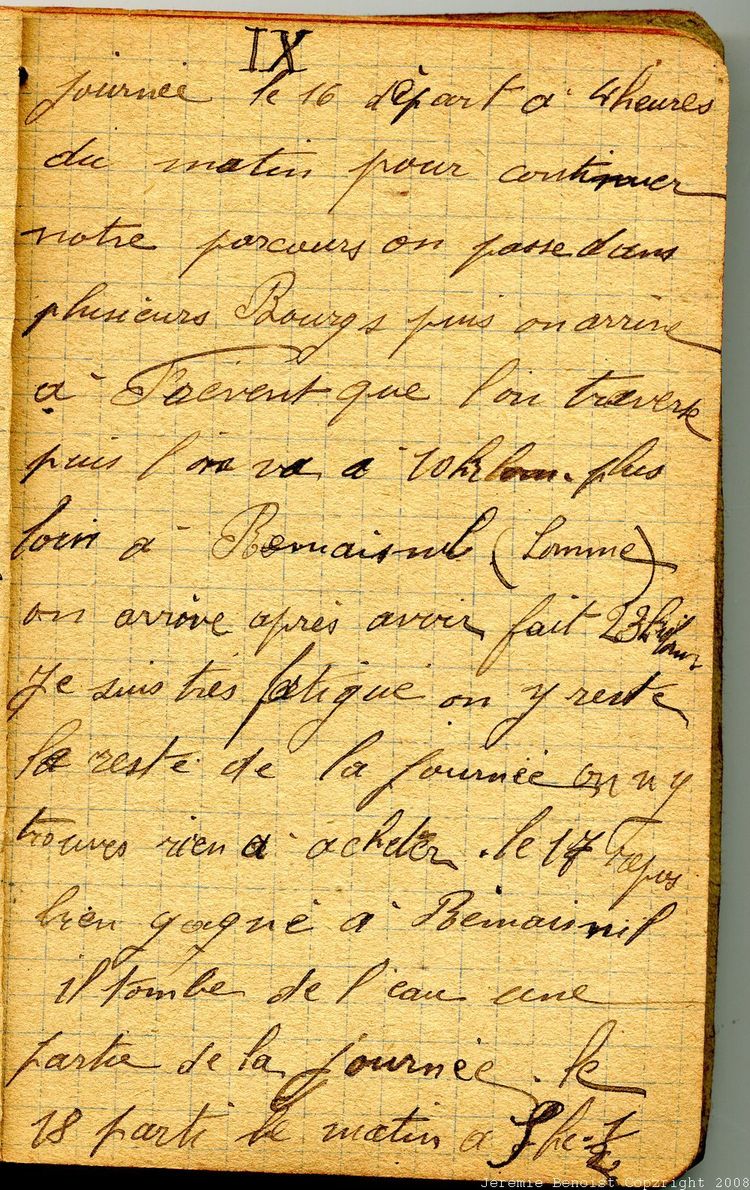 IX
journée le 16 départ à 4 heures
du matin pour continuer
notre parcours on passe dans
plusieurs Bourgs puis on arrive
à Frévent que l'on traverse
puis l'on va à 10 kilom. plus
loin à Remaisnil (Somme)
on arrive après avoir fait 23 kil
Je suis très fatigué on y reste
le reste de la journée on n y
trouves rien à acheter. le 17 repos
bien gagné à Rémaisnil
il tombe de l'eau une
partie de la journée. le
18 parti le matin à h 1/2
Jeremie Benoist Copzright 2008